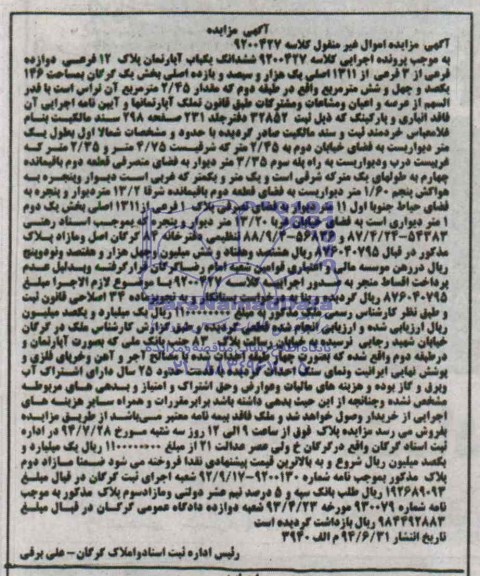 آگهی مزایده
آگهی مزایده اموال غیر منقول کلاسه ۹۲۰۰۴۲۷
به موجب پرونده اجرایی کلاسه ۹۲۰۰۴۲۷ ششدانگ یکباب آپارتمان پلاک ۱۲ فرعی دوازده
فرعی از ۳ فرعی از ۱۳۱۱ اصلی یک هزار و سیصد و یازده اصلی بخش یک گرگان بمساحت ۱۴۶
یکصد و چهل و شش مترمربع واقع در طبقه دوم که مقدار ۲/۴۵ مترمربع آن تراس است با قدر
السهم از عرصه و اعیان ومشاعات ومشترکات طبق قانون تملک آپارتمانها و آیین نامه اجرایی آن
فاقد انباری و پارکینگ که ذیل ثبت ۳۲۸۵۲ دفترجلد ۲۳۱ صفحه ۲۹۸ سند مالکیت بنام
غلامعباس خردمند ثبت و سند مالکیت صادر گردیده با حدود و مشخصات شمالا اول بطول یک
متر دیواریست به فضای خیابان دوم به ۲/۴۵ متر که شرقیست ۴/۷۵ متر و ۲/۳۵ متر که
غربیست درب ودیواریست به راه پله سوم ۳/۳۵ متر دیوار به فضای متصرفی قطعه دوم باقیمانده
چهارم به طولهای یک مترکه شرقی است و یک متر و یکمتر که غربی است دیوار وپنجره به
هواکش پنجم ۱/۶۰ متر دیواریست به فضای قطعه دوم باقیمانده شرقا ۱۳/۲ متردیوار و پنجره به
فضای حیاط جنوبا اول ۱۱ متر دیوار به فضای متصرفی پلاک ۱ فرعی از۱۳۱۱ اصلی بخش یک دوم
۱ متر دیواری است به فضای خیابان غربا ۱۳/۲۰ متر دیوار و پنجره که بموجب اسناد رهنی
۵۴۳۸۳-۸۷/۴/۲۴ و ۵۶۸۳۶-۸۸/۹/۴ تنظیمی دفترخانه گرگان اصل ومازاد پلاک
مذکور در قبال ۸۷۶۰۴۰۷۹۵ ریال هشتصد وهفتاد و شش میلیون وچهل هزار و هفتصد ونودوپنج
ریال دررهن موسسه مالی و اعتباری قوامین شعبه امام رضا گرگان قرارگرفته وبدلیل عدم
پرداخت اقساط منجر به صدور اجرایی کلاسه ۹۲۰۰۴۲۷ با موضوع لازم الاجرا مبلغ
۸۷۶۰۴۰۷۹۵ ریال گردیده وبنا به درخواست بستانکار و به تجویز ماده ۳۴ اصلاحی قانون ثبت
و طبق نظر کارشناس رسمی ملک مذکور به مبلغ ۱۱۰۰۰۰۰۰۰۰ ریال یک میلیارد و یکصد میلیون
ریال ارزیابی شده و ارزیابی انجام شده قطعی گردیده و طبق گزارش کارشناس ملک در گرگان
خیابان شهید رجایی نرسیده به خیابان پلاک ۸۳ ملی که بصورت آپارتمان و
درطبقه دوم واقع شده که بصورت چهار طبقه احداث شده با مصالح آجر و آهن وخرپای فلزی و
پوشش نهایی ایرانیت ونمای سنگ احداث گردیده قدمت حدود ۲۵ سال دارای اشتراک آب
وبرق و گاز بوده و هزینه های مالیات وعوارض وحق اشتراک و امتیاز و بدهی های مربوطه
مشخص نشده وچنانچه از این حیث بدهی داشته باشد برابرمقررات و همراه سایر هزینه های
اجرایی از خریدار وصول خواهد شد و ملک فاقد بیمه نامه معتبر می‌باشد از طریق مزایده
بفروش می رسد مزایده پلاک فوق از ساعت ۹ الی ۱۲ روز سه شنبه مورخ ۹۴/۷/۲۸ در اداره
ثبت اسناد گرگان واقع درگرگان خ ولی عصر عدالت ۲۱ از مبلغ ۱۱۰۰۰۰۰۰۰۰ ریال یک میلیارد و
یکصد میلیون ریال شروع و به بالاترین قیمت پیشنهادی نقدا فروخته می شود ضمنا مازاد دوم
پلاک مذکور بموجب نامه شماره ۹۲۰۰۱۳۰-۹۲/۹/۱۷ شعبه اجرای ثبت گرگان در قبال مبلغ
۱۹۲۶۸۹۰۹۳ ریال طلب بانک سپه و ۵ درصد نیم عشر دولتی ومازادسوم پلاک مذکور به موجب
نامه شماره ۹۳۰۰۷۹ مورخه ۹۳/۴/۲۳ شعبه دوازده دادگاه عمومی گرگان در قبال مبلغ
۹۸۴۴۹۲۸۸۳ ریال بازداشت گردیده است
تاریخ انتشار ۹۴/۶/۳۱ م الف ۳۹۴۰
رئیس اداره ثبت اسنادواملاک گرگان - علی برقی